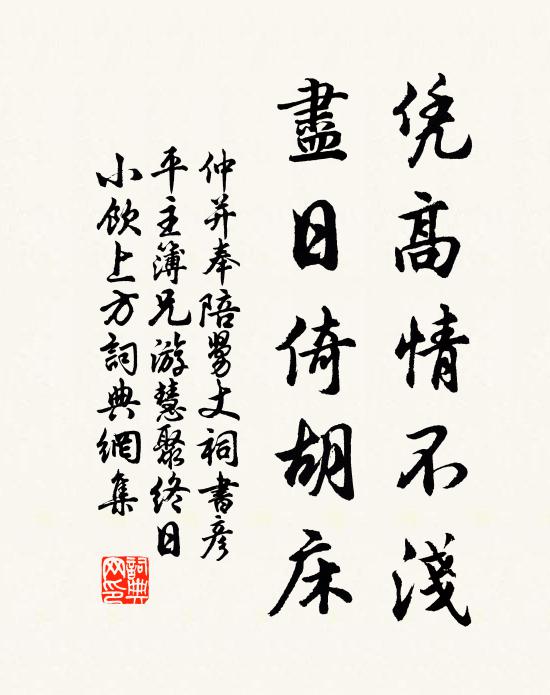 凭高情不淺
盡日倚胡床
仲并奉陪舅丈祠書彦
平主簿兄游慧聚终日
小飲上方詞典網集
詞典网印